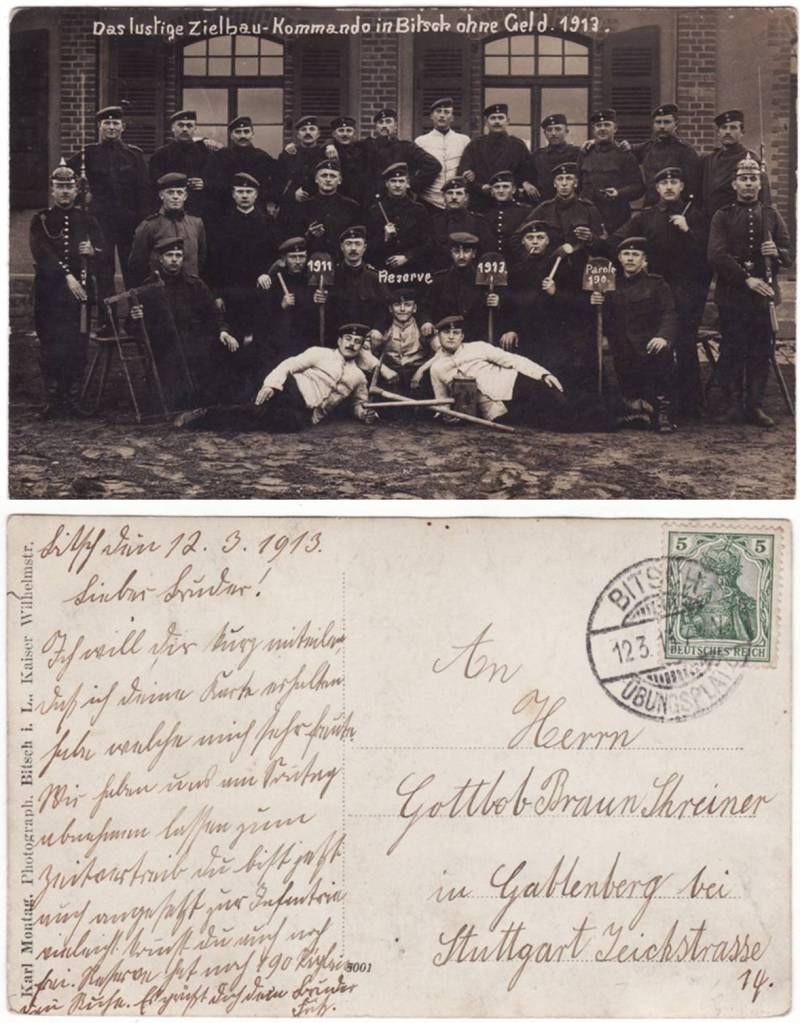 Das lustige Zielbau-Kommando in Bitsch ohne Geld. 1913.
1911.
Reserve
1913.
Parole
190.
Karl Montag, Photograph. Bitsch i. L., Kaiser Wilhelmstr.
Bitsch den 12. 3. 1913.
Lieber Bruder!
Ich will dir kurz mitteilen,
daß ich deine Karte erhalten
habe welche mich sehr freute.
Wir haben uns am Sontag
abnehmen lassen zum
Zeitvertreib du bist jetzt
auch angesetzt zur Infantrie
vieleicht kommst du auch noch
frei. Reserve hat noch 190
den Ruhe. Es grüßt dich dein Bruder
5001
5
5
DEUTSCHES REICH
BITSCH
12.3.
ÜBUNGSPLATZ
An
Herrn
Gottlob Braun Shreiner
in Gablenberg bei
Stuttgart Teichstrasse
14.